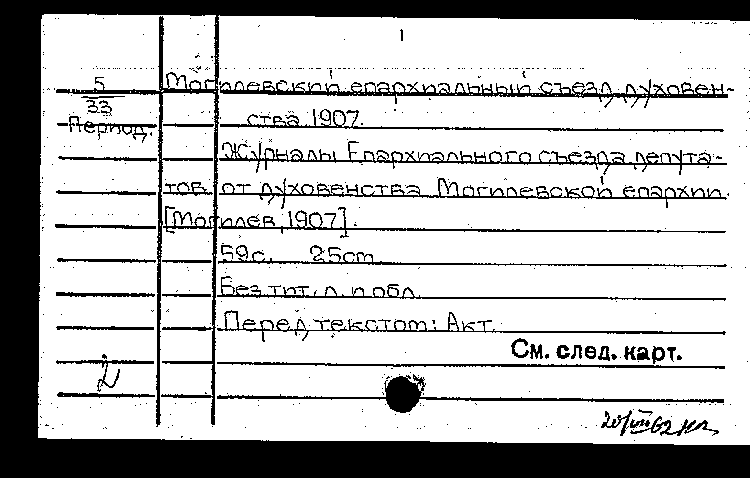 1
5
33
Период.
Могилевский епархиальный съезд духовен-
ства 1907.
Журналы Епархиального съезда депута-
тов от духовенства Могилевской епархии.
[Могилев, 1907].
59с. 25cm.
Без тит. л. и обл.
Перед текстом: Акт.
См. след. карт.
2